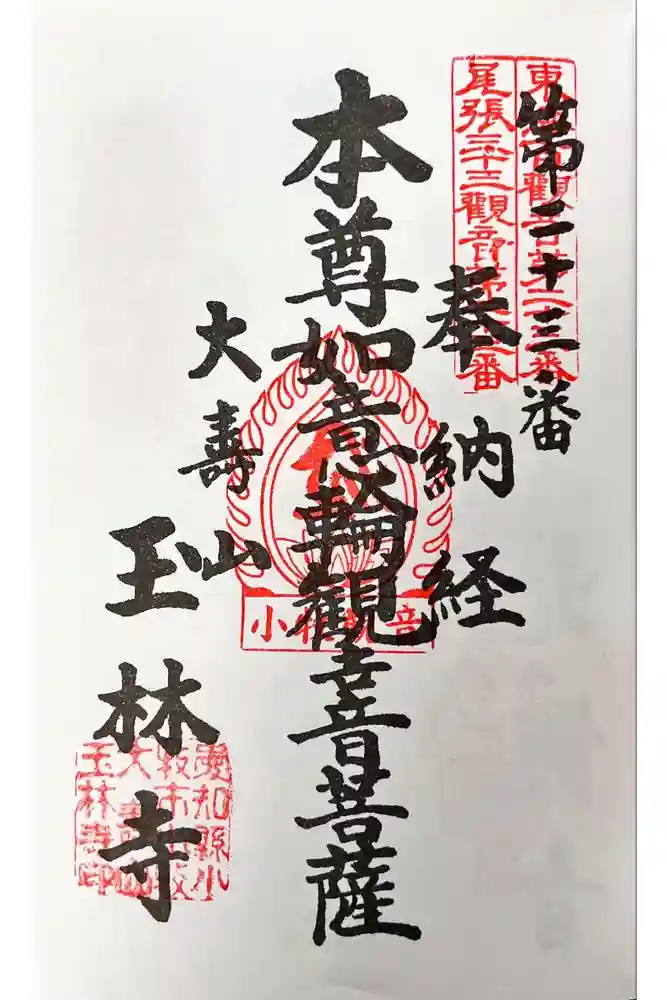 東海百觀音第二十三番
尾張三十三觀音第
第二十三番
奉納経
本尊如意輪観世音菩薩
小牧観音
大壽山
玉林寺
愛知縣小
牧市小牧
大壽山
玉林寺印